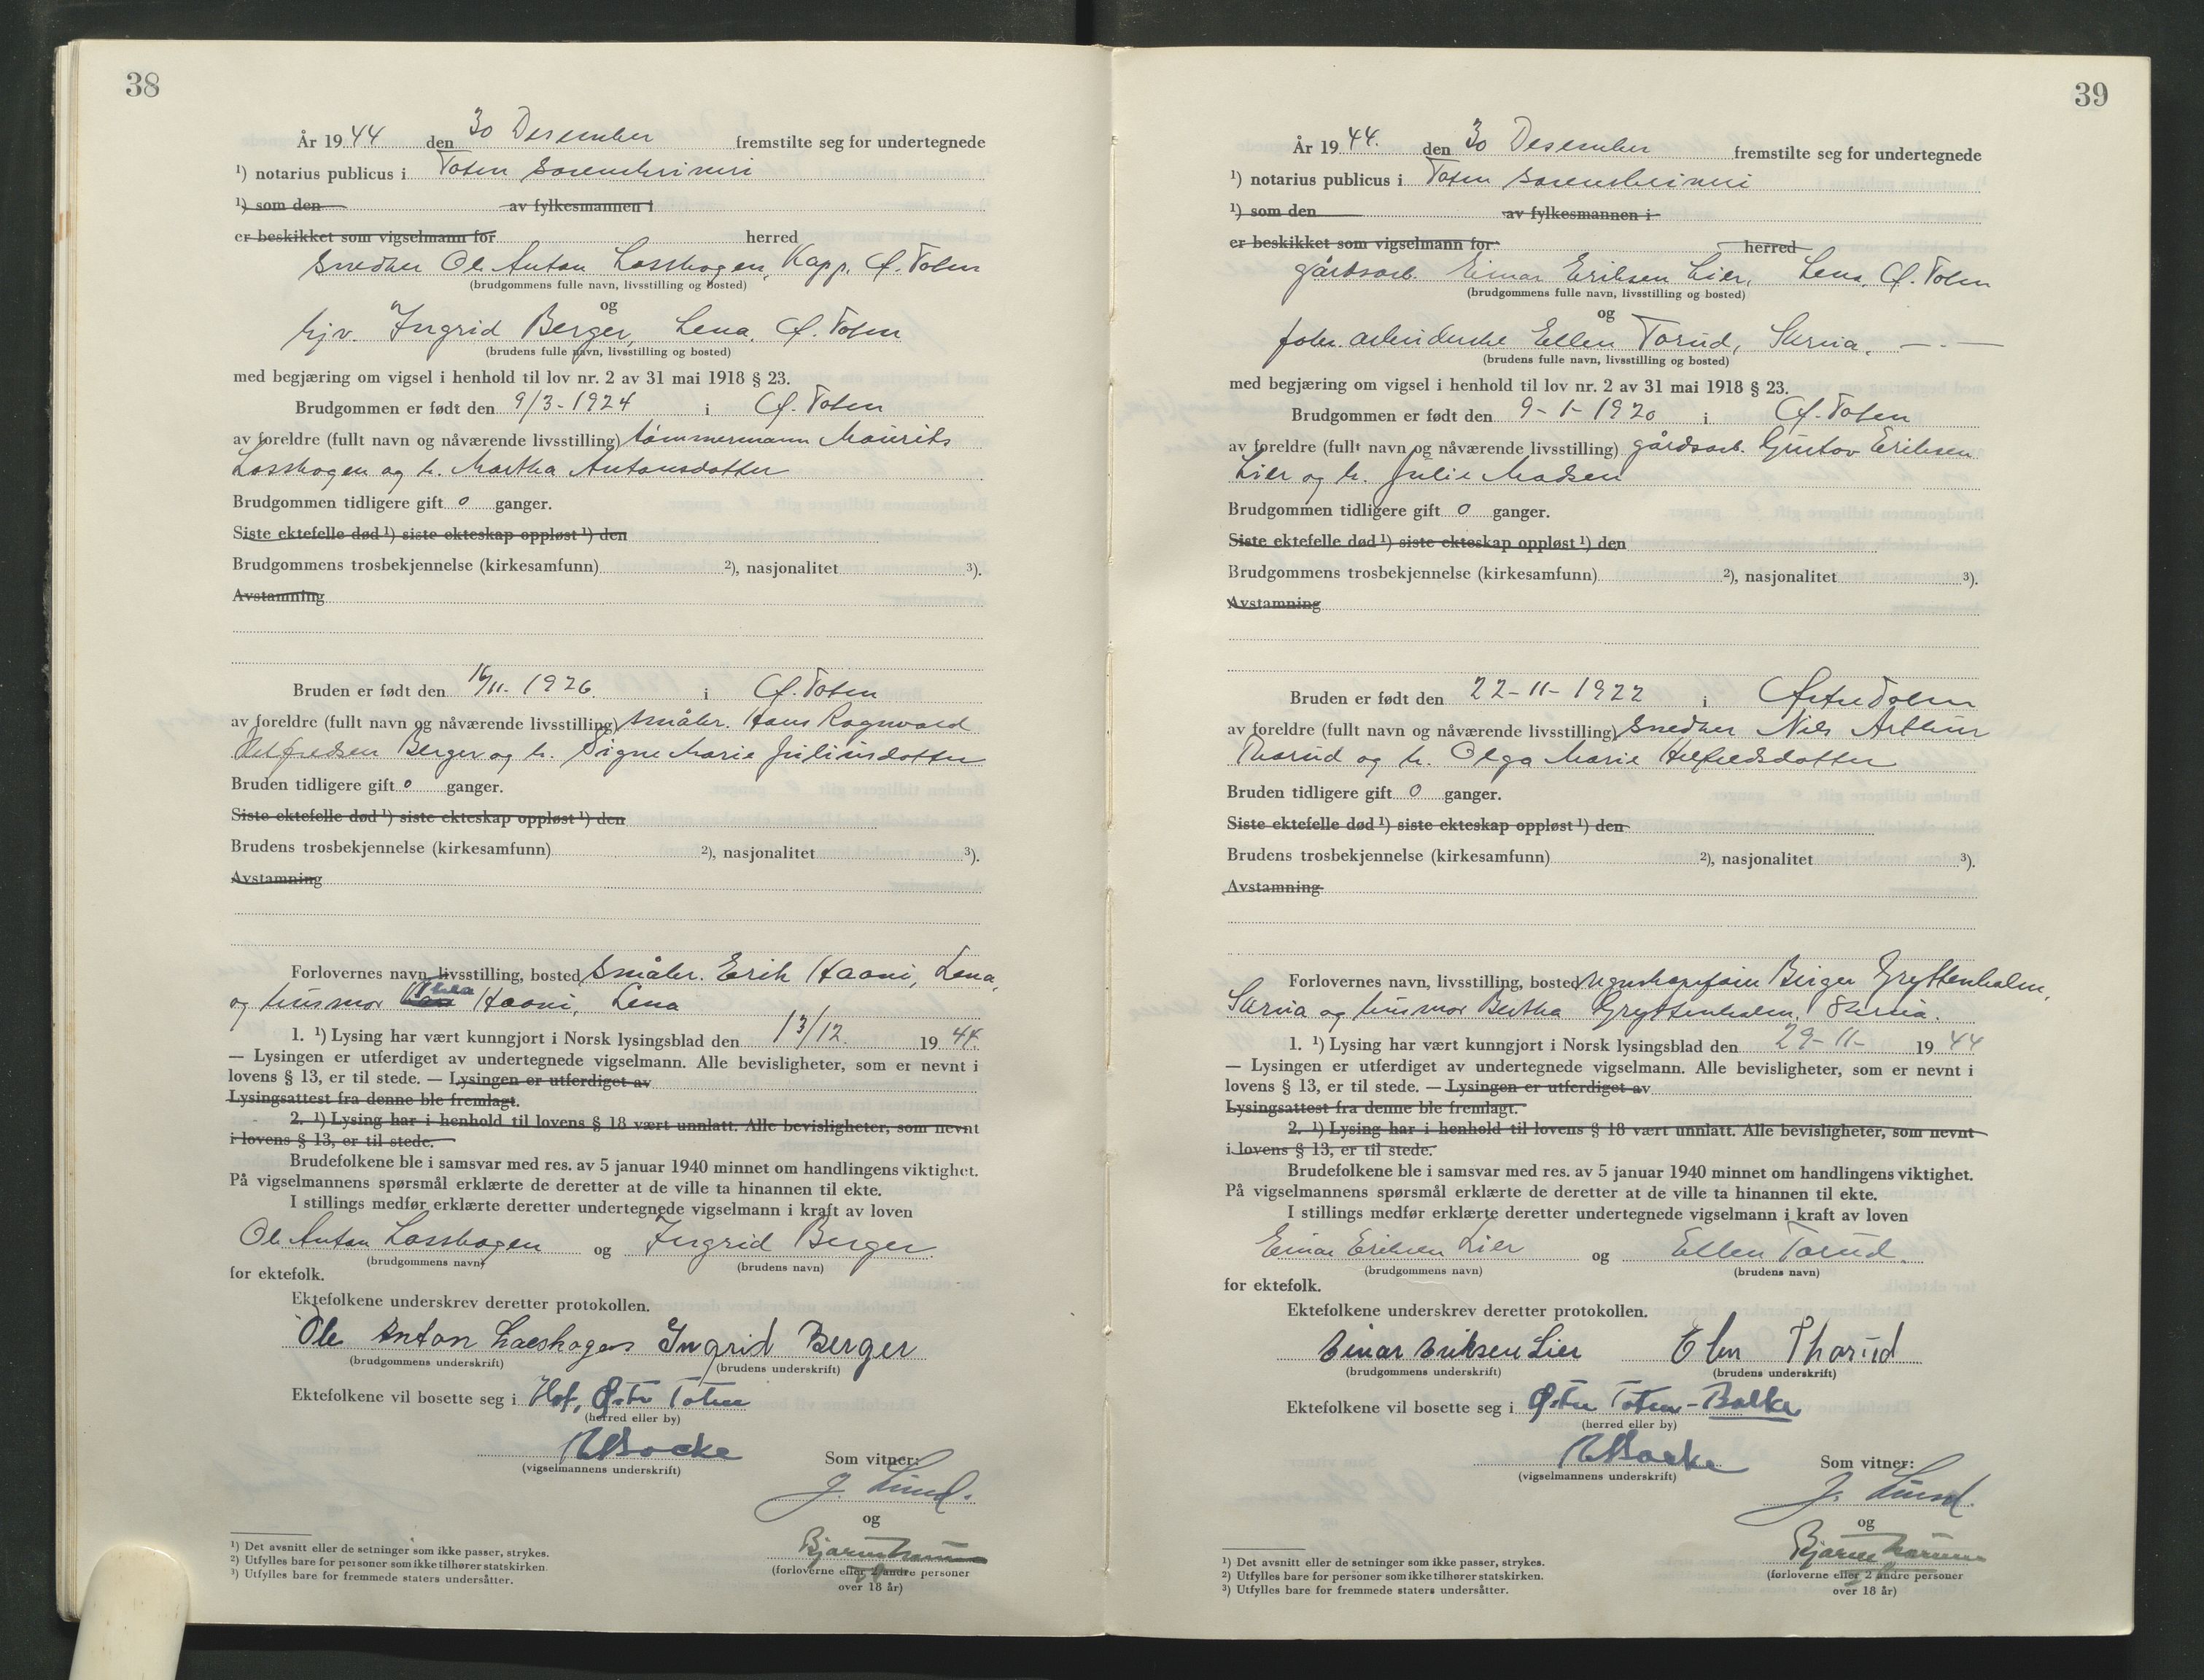 38
År 1944 den 30 Desember fremstilte seg for undertegnede
¹) notarius publicus i Toten sorenskriveri
¹) som den av fylkesmannen i
er beskikket som vigselmann for herred
snedker Ole Anton Losshagen, Kapp, Ø. Toten
(brudgommens fulle navn, livsstilling og bosted)
og
hjv. Ingrid Berger, Lena, Ø. Toten
(brudens fulle navn, livsstilling og bosted)
med begjæring om vigsel i henhold til lov nr. 2 av 31 mai 1918 § 23.
Brudgommen er født den 9/3-1924 i Ø. Toten
av foreldre (fullt navn og nåværende livsstilling) tømmermann Maurits
Losshagen og h. Martha Antonsdatter
Brudgommen tidligere gift 0 ganger.
Siste ektefelle død ¹) siste ekteskap oppløst ¹) den
Brudgommens trosbekjennelse (kirkesamfunn) ²), nasjonalitet ³).
Avstamning
Bruden er født den 16/11-1926. i Ø. Toten
av foreldre (fullt navn og nåværende livsstilling) småbr. Hans Ragnvald
Helfredsen Berger og h. Signe Marie Juliusdatter
Bruden tidligere gift 0 ganger.
Siste ektefelle død ¹) siste ekteskap oppløst ¹) den
Brudens trosbekjennelse (kirkesamfunn) ²), nasjonalitet ³).
Avstamning
Forlovernes navn, livsstilling, bosted småbr. Erik Haoni, Lena,
og husmor Thea Haoni, Lena
1. ¹) Lysing har vært kunngjort i Norsk lysingsblad den 13/12. 1944.
— Lysingen er utferdiget av undertegnede vigselmann. Alle bevisligheter, som er nevnt i
lovens § 13, er til stede. — Lysingen er utferdiget av
Lysingsattest fra denne ble fremlagt.
2. ¹) Lysing har i henhold til lovens § 18 vært unnlatt. Alle bevisligheter, som nevnt
i lovens § 13, er til stede.
Brudefolkene ble i samsvar med res. av 5 januar 1940 minnet om handlingens viktighet.
På vigselmannens spørsmål erklærte de deretter at de ville ta hinannen til ekte.
I stillings medfør erklærte deretter undertegnede vigselmann i kraft av loven
Ole Anton Losshagen og Ingrid Berger
(brudgommens navn) (brudens navn)
for ektefolk.
Ektefolkene underskrev deretter protokollen.
Ole Anton Losshagen Ingrid Berger
(brudgommens underskrift) (brudens underskrift)
Ektefolkene vil bosette seg i Hof, Østre Toten
(herred eller by)
(vigselmannens underskrift)
Som vitner:
J. Lund.
og
Bjarne
(forloverne eller 2 andre personer
over 18 år)
¹) Det avsnitt eller de setninger som ikke passer, strykes.
²) Utfylles bare for personer som ikke tilhører statskirken.
³) Utfylles bare for fremmede staters undersåtter.
39
År 1944. den 30 Desember fremstilte seg for undertegnede
¹) notarius publicus i Toten sorenskriveri
¹) som den av fylkesmannen i
er beskikket som vigselmann for herred
gårdsarb. Einar Eriksen Lier, Lena, Ø. Toten
(brudgommens fulle navn, livsstilling og bosted)
og
fabr. arbeiderske Ellen Torud, Skreia, — " —
(brudens fulle navn, livsstilling og bosted)
med begjæring om vigsel i henhold til lov nr. 2 av 31 mai 1918 § 23.
Brudgommen er født den 9-1-1920 i Ø. Toten
av foreldre (fullt navn og nåværende livsstilling) gårdsarb. Gustav Eriksen
Lier og h. Julie Madsen
Brudgommen tidligere gift 0 ganger.
Siste ektefelle død ¹) siste ekteskap oppløst ¹) den
Brudgommens trosbekjennelse (kirkesamfunn) ²), nasjonalitet ³).
Avstamning
Bruden er født den 22-11-1922 i Østre Toten
av foreldre (fullt navn og nåværende livsstilling) snedker Nils Arthur
Thorud og h. Olga Marie Helfredsdatter
Bruden tidligere gift 0 ganger.
Siste ektefelle død ¹) siste ekteskap oppløst ¹) den
Brudens trosbekjennelse (kirkesamfunn) ²), nasjonalitet ³).
Avstamning
Forlovernes navn, livsstilling, bosted regnskapsfører Birger Gryttenholm,
Skreia og husmor Bertha Gryttenholm, Skreia.
1. ¹) Lysing har vært kunngjort i Norsk lysingsblad den 29-11- 1944
— Lysingen er utferdiget av undertegnede vigselmann. Alle bevisligheter, som er nevnt i
lovens § 13, er til stede. — Lysingen er utferdiget av
Lysingsattest fra denne ble fremlagt.
2. ¹) Lysing har i henhold til lovens § 18 vært unnlatt. Alle bevisligheter, som nevnt
i lovens § 13, er til stede.
Brudefolkene ble i samsvar med res. av 5 januar 1940 minnet om handlingens viktighet.
På vigselmannens spørsmål erklærte de deretter at de ville ta hinannen til ekte.
I stillings medfør erklærte deretter undertegnede vigselmann i kraft av loven
Einar Eriksen Lier og Ellen Torud
(brudgommens navn) (brudens navn)
for ektefolk.
Ektefolkene underskrev deretter protokollen.
Einar Eriksen Lier Elen Thorud
(brudgommens underskrift) (brudens underskrift)
Ektefolkene vil bosette seg i Østre Toten - Balke
(herred eller by)
(vigselmannens underskrift)
Som vitner:
J. Lund.
og
Bjarne
(forloverne eller 2 andre personer
over 18 år)
¹) Det avsnitt eller de setninger som ikke passer, strykes.
²) Utfylles bare for personer som ikke tilhører statskirken.
³) Utfylles bare for fremmede staters undersåtter.